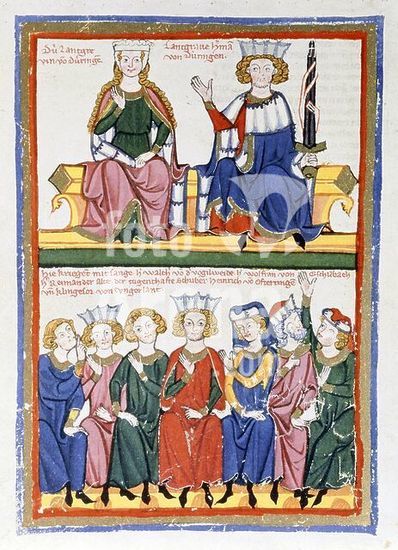 Dú Lantgre
vin vō Dúringe.
Lantgrave h'mā
von Dúringen.
Hie kriegen mit sange h' walth' vō d' vogilweide h' wolfrim von Eschilbach
h' Reinander alte der tugenthafte Schriber Henrich vō Ofteringē
vn klingesor von vngerlant
FOTO